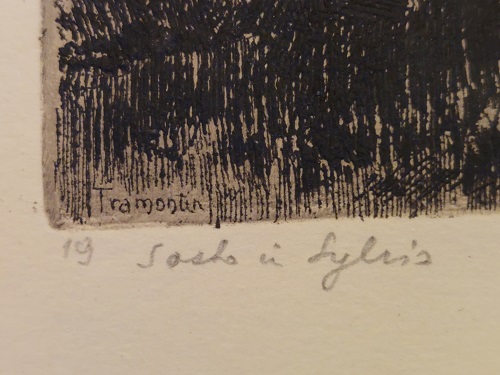 Tramontin
19 Sosta in Sylvis